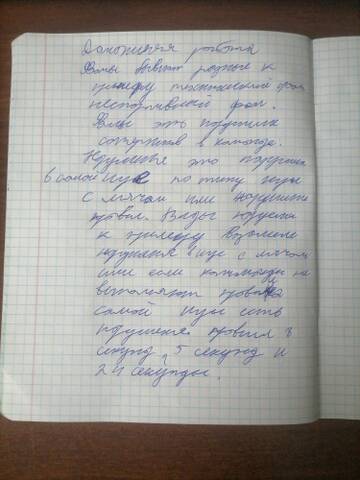 Домашняя работа
Фолы бывают разные к
примеру технический фол
неспортивный фол.
Фолы это подножка
соперников в команде.
Нарушенье это нарушения
в самой игре по типу игры
с мячом или нарушения
правил. Виды нарушения
к примеру
нарушения в игре с мячом
или если команды не
выполняют правила
самой игры есть
нарушения правила 3
секунд, 5 секунд и
24 секунды.